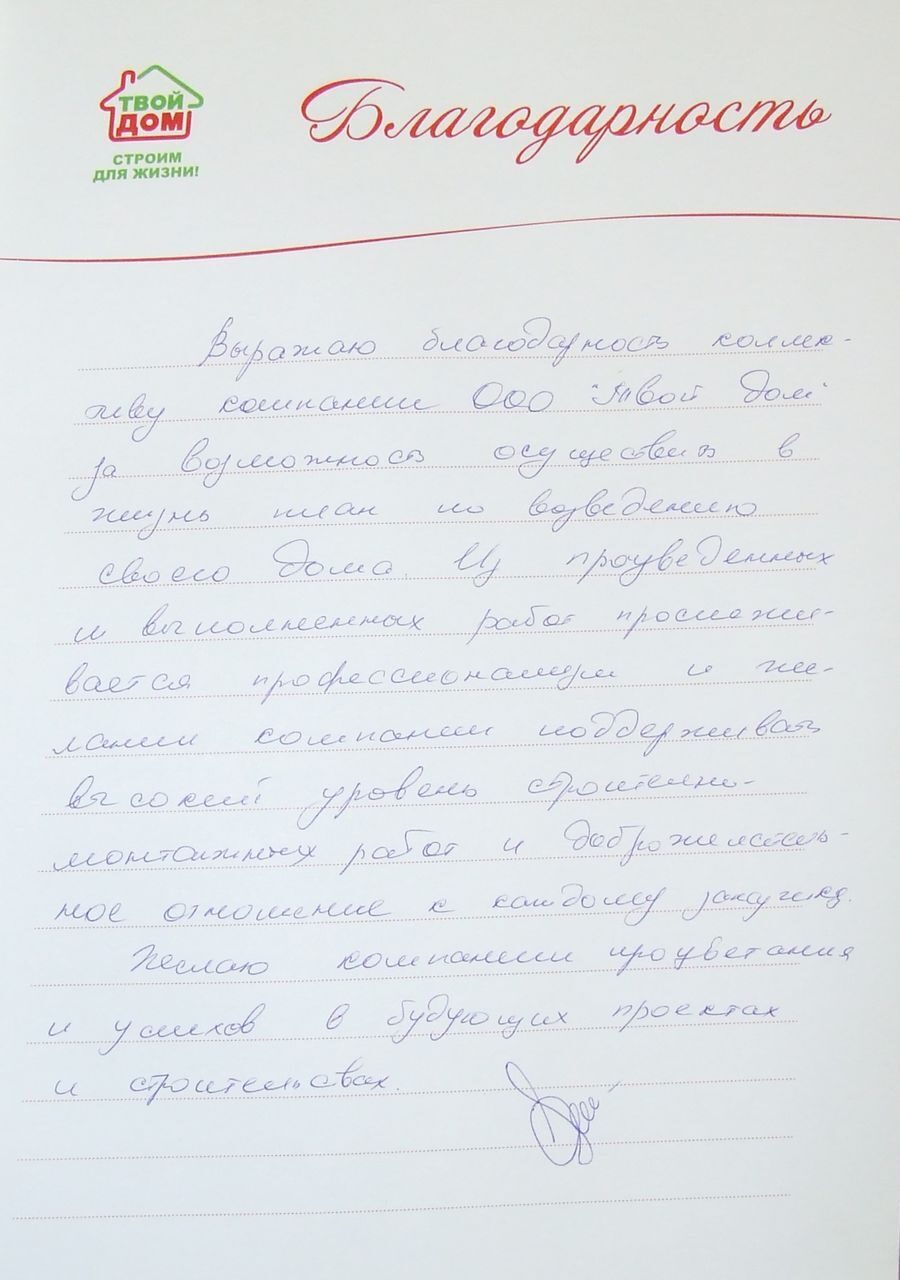 ТВОЙ
ДОМ
СТРОИМ
ДЛЯ ЖИЗНИ!
Благодарность
Выражаю благодарность коллек-
тиву компании ООО "Твой дом"
за возможность осуществить в
жизнь план по возведению
своего дома. Из проуведенных
и выполненных работ прослежи-
вается профессионализм и же-
лании компании поддерживать
высокий уровень строительно-
монтажных работ и доброжелатель-
ное отношение к каждому заказчику.
Желаю компании процветания
и успехов в будующих проектах
и строительствах.